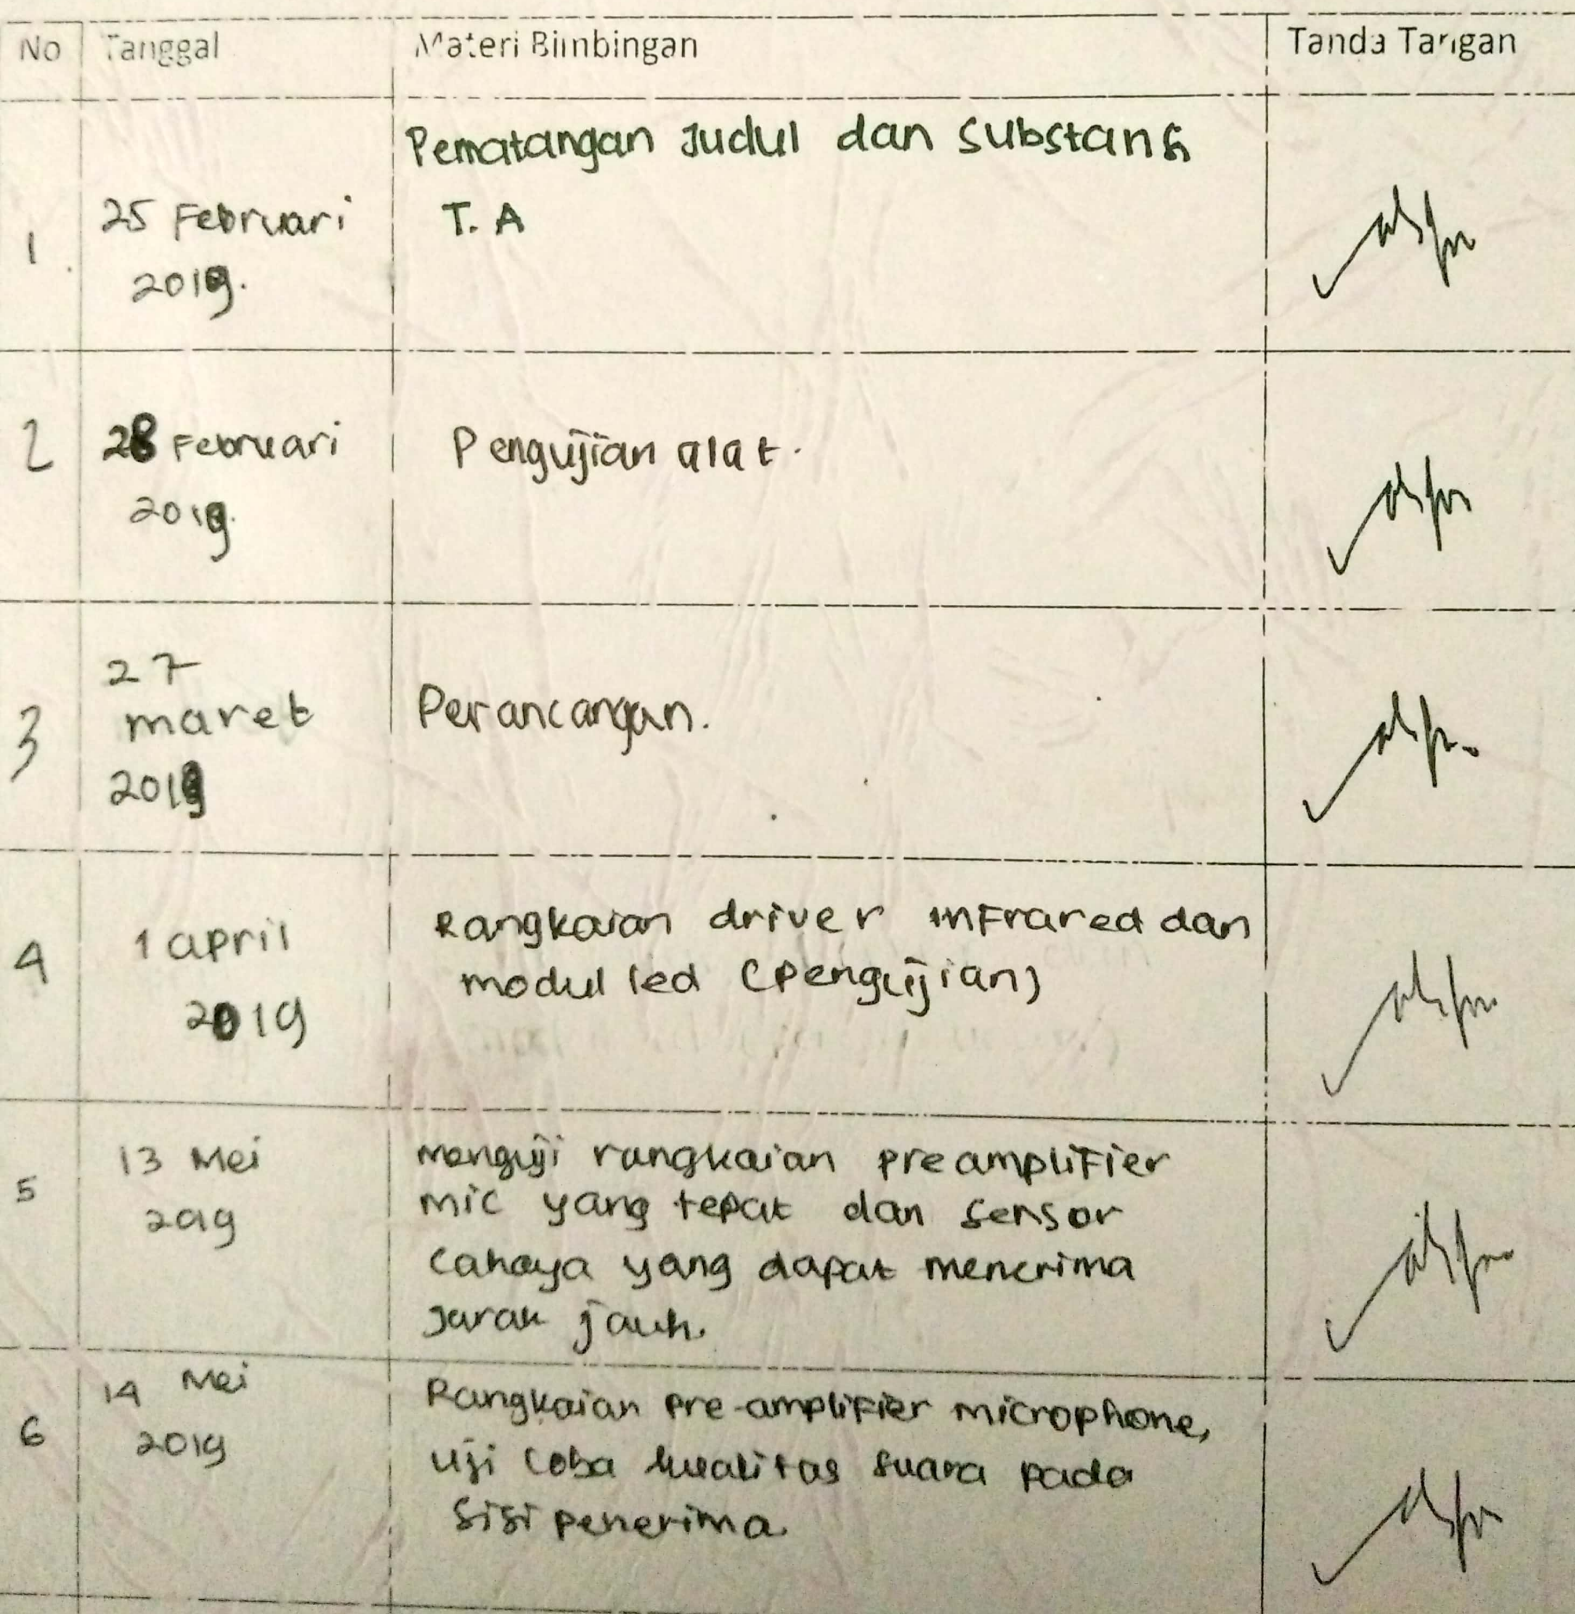 No Tanggal Materi Bimbingan Tanda Tangan
1 25 Februari 2019. Pematangan Judul dan Substansi
T. A
2 28 Februari 2019. Pengujian alat.
3 27 maret 2019 Perancangan.
4 1 april 2019 Rangkaian driver infrared dan
modul led (pengujian)
5 13 Mei 2019 menguji rangkaian preamplifier
mic yang tepat dan sensor
cahaya yang dapat menerima
jarak jauh.
6 14 Mei 2019 Rangkaian pre-amplifier microphone,
uji coba kualitas suara pada
sisi penerima.